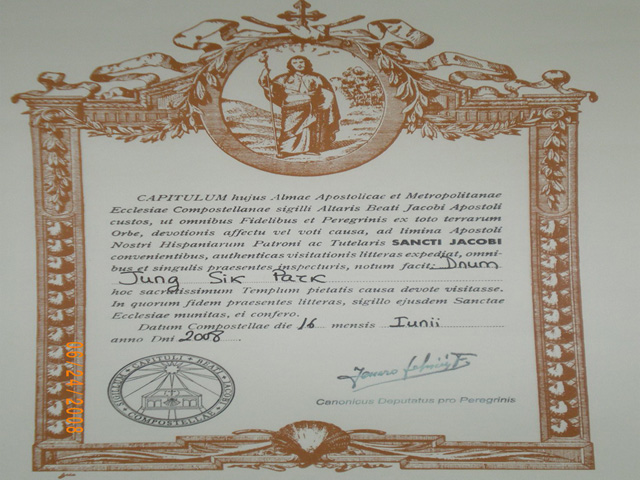 CAPITULUM hujus Almae Apostolicae et Metropolitanae
Ecclesiae Compostellanae sigilli Altaris Beati Jacobi Apostoli
custos, ut omnibus Fidelibus et Peregrinis ex toto terrarum
Orbe, devotionis affectu vel voti causa, ad limina Apostoli
Nostri Hispaniarum Patroni ac Tutelaris SANCTI JACOBI
convenientibus, authenticas visitationis litteras expediat, omni-
bus et singulis praesentes inspecturis, notum facit: Dnum.
Jung Sik Park
hoc sacratissimum Templum pietatis causa devote visitasse.
In quorum fidem praesentes litteras, sigillo ejusdem Sanctae
Ecclesiae munitas, ei confero.
Datum Compostellae die 16 mensis Iunii
anno Dni 2008.
SIGILLUM CAPITULI BEATI JACOBI COMPOSTELLAE
Canonicus Deputatus pro Peregrinis
06/24/2008